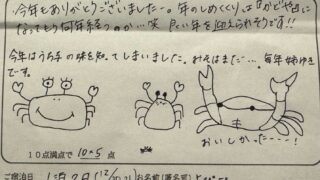 今年もありがとうございましたー。年のしめくくりは「かどや」に
なってもう何年経つのか…笑 良い年を迎えられそうです!!
今年はうち子の味を知ってしまいました。みそはまだ…。毎年姉ゆき
です。
おいしかったーーー!
10点満点で 10×5 点
ご宿泊日
お名前(匿名可)